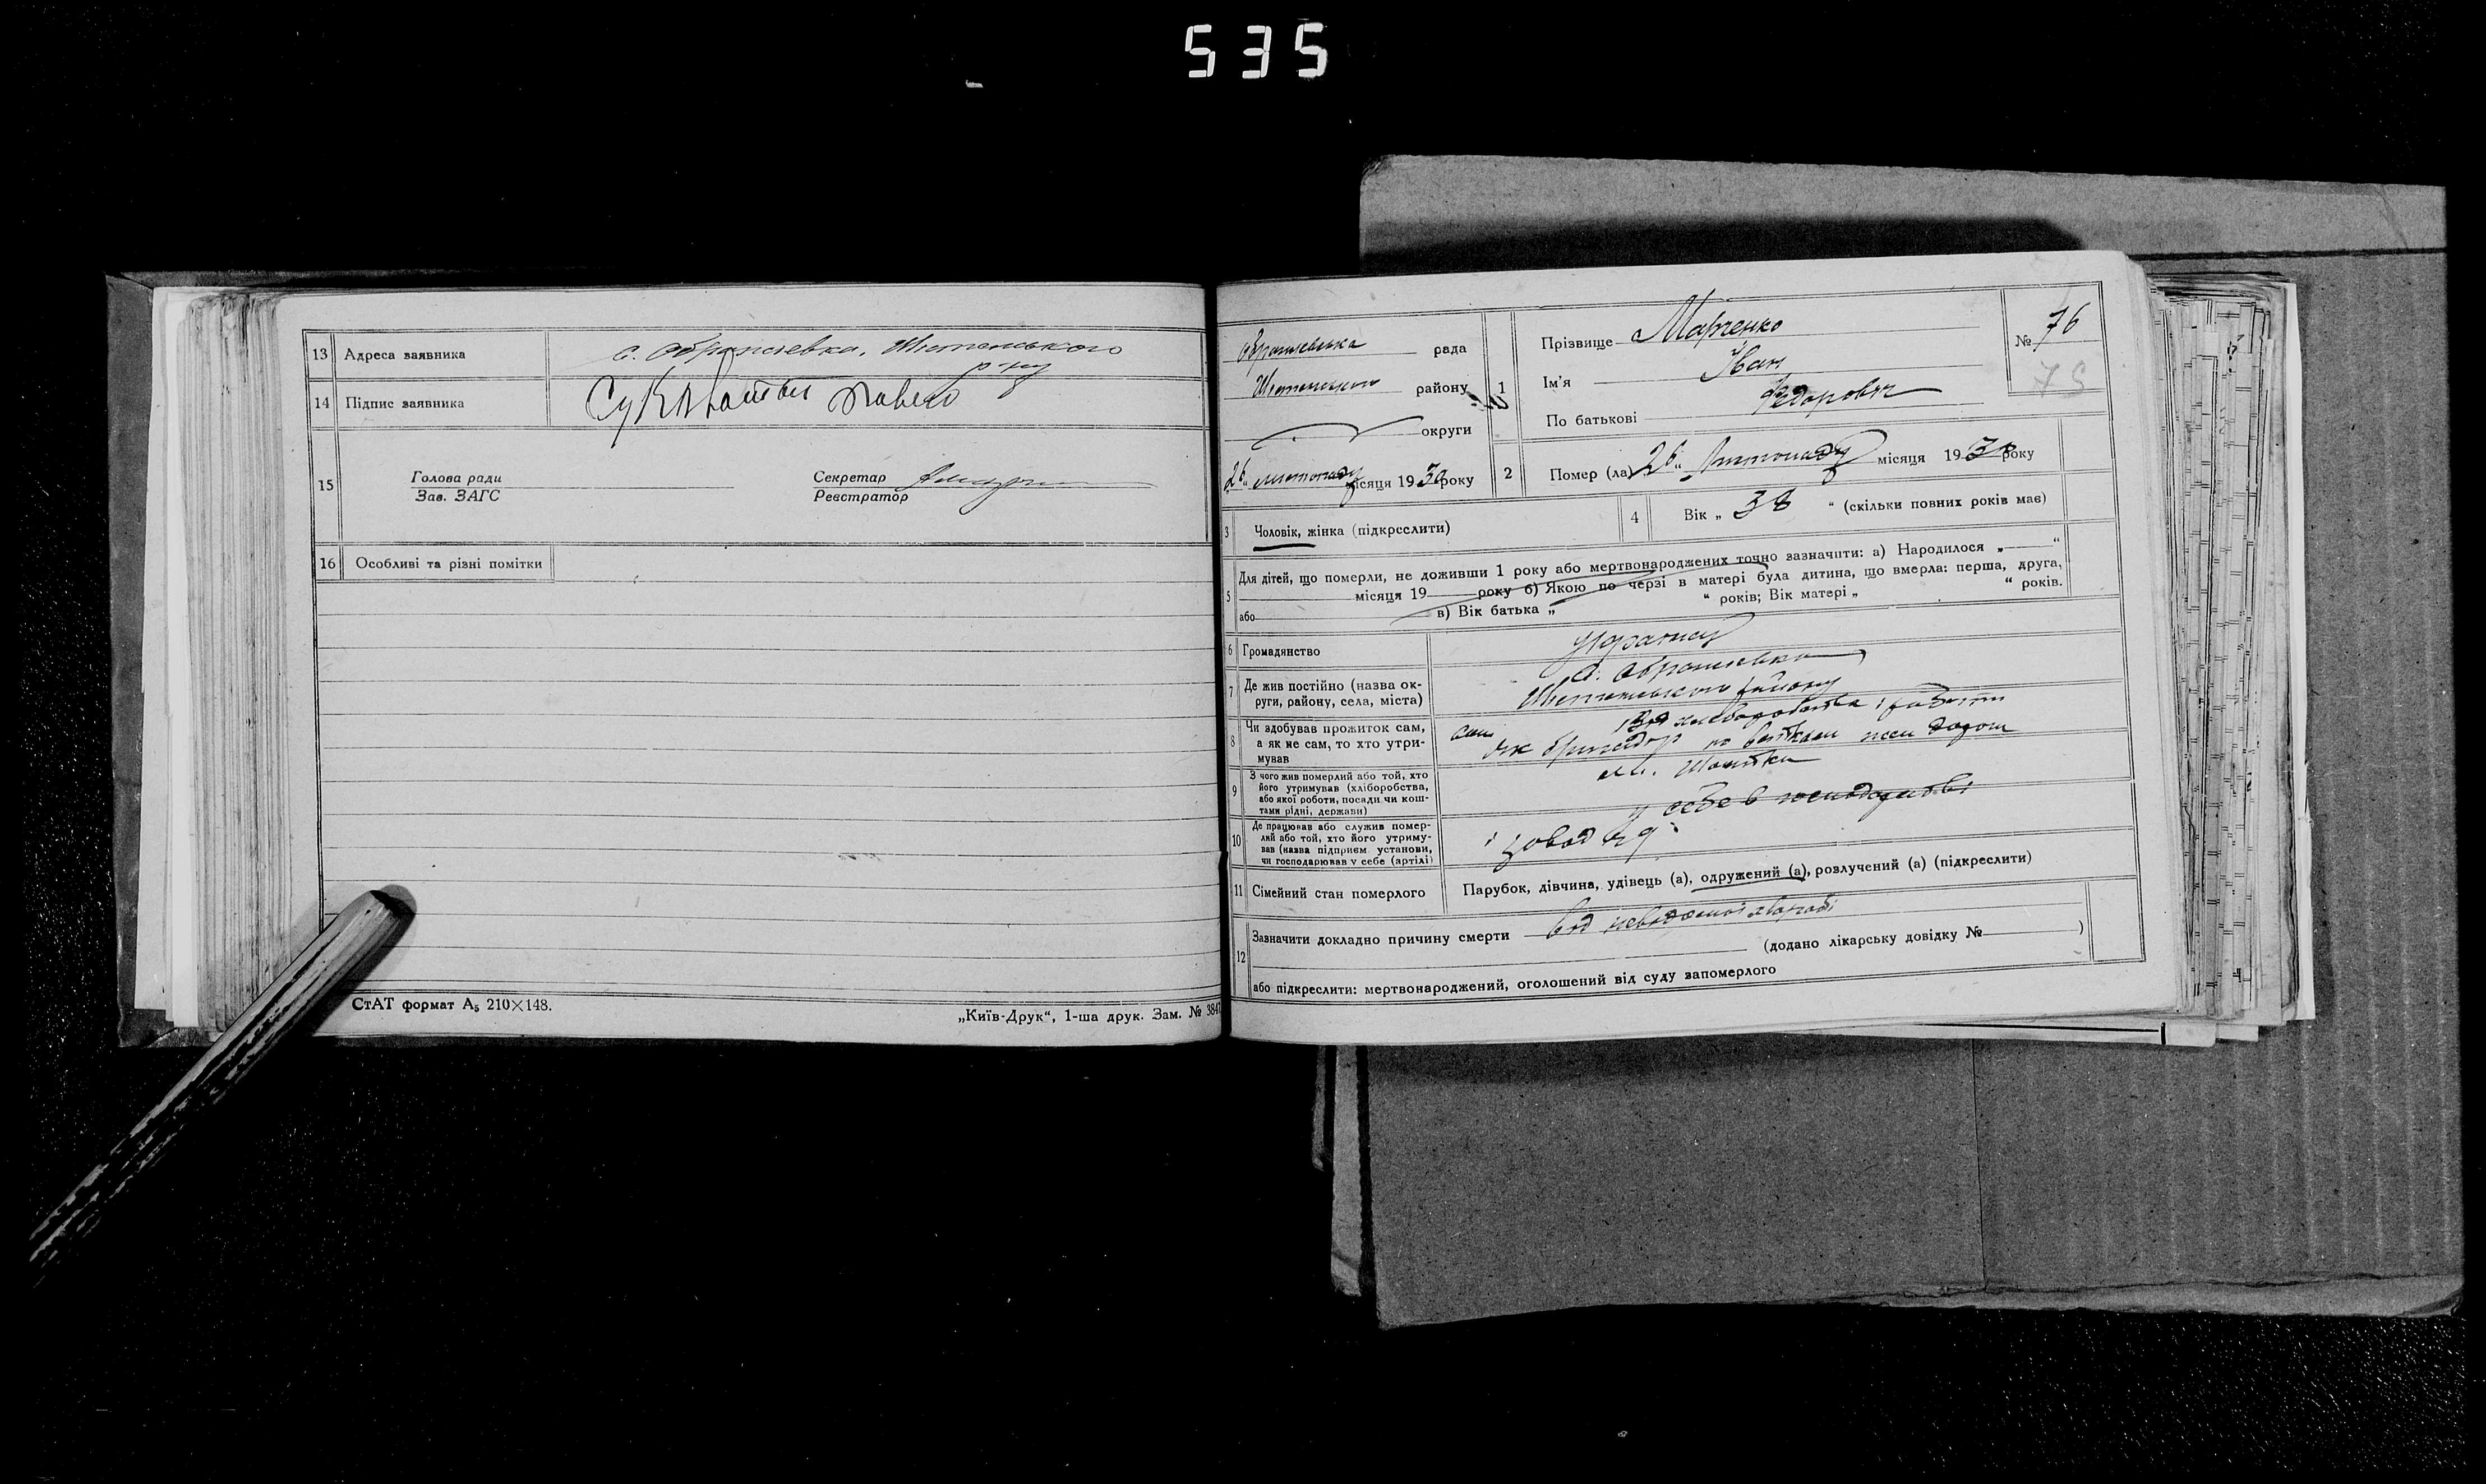 535
13 Адреса заявника с. Абрамєвка, Шостенського
р-ну
14 Підпис заявника Павло
15 Голова ради Секретар
Зав. ЗАГС Реєстратор
16 Особливі та різні помітки
СтАТ формат А5 210×148.
„Київ-Друк“, 1-ша друк. Зам. № 384
рада
Шостенського району
округи
26 листопаду місяця 1930 року
1 Прізвище Марченко
Ім'я Іван
По батькові Федорович
№ 76
75
2 Помер (ла) 26 „ Листопаду місяця 1930 року
3 Чоловік, жінка (підкреслити)
4 Вік „ 38 “ (скільки повних років має)
5 Для дітей, що померли, не доживши 1 року або мертвонароджених точно зазначити: а) Народилося „ “
місяця 19 року б) Якою по черзі в матері була дитина, що вмерла: перша, друга,
або в) Вік батька „ “ років; Вік матері „ “ років.
6 Громадянство
7 Де жив постійно (назва округи, району, села, міста) с.
Шостенського району
8 Чи здобував прожиток сам,
а як не сам, то хто утримував
сам
9 З чого жив померлий або той, хто
його утримував (хліборобства,
або якої роботи, посади чи коштами рідні, держави)
10 Де працював або служив померлий або той, хто його утримував (назва підприєм установи,
чи господарював у себе (артілі)
у себе в господарстві
і завод
11 Сімейний стан померлого Парубок, дівчина, удівець (а), одружений (а), розлучений (а) (підкреслити)
12 Зазначити докладно причину смерти від невідомої хвороби
(додано лікарську довідку № )
або підкреслити: мертвонароджений, оголошений від суду запомерлого